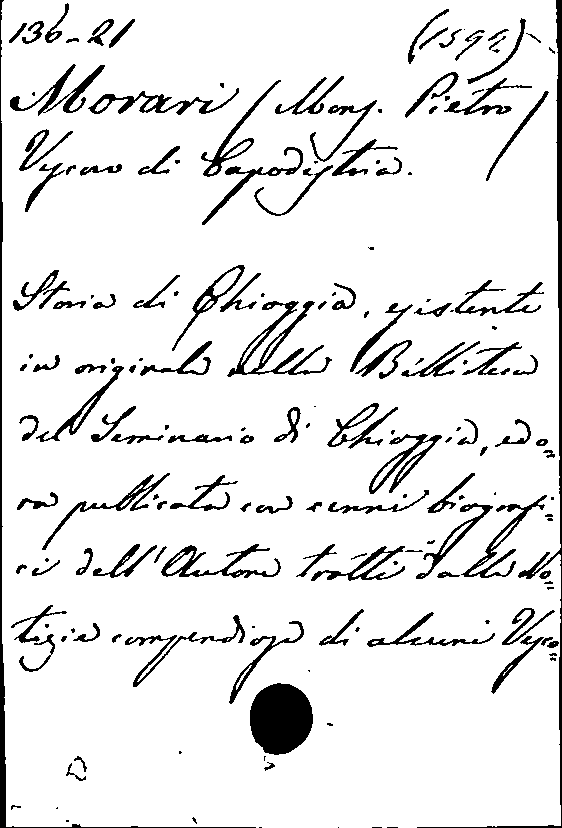 136-21 (1592)
Morari (Mons. Pietro)
Vescovo di Capodistria.
Storia di Chioggia, esistente
in originale nella Biblioteca
del Seminario di Chioggia, ed o=
ra pubblicata con cenni biografi=
ci dell'Autore tratti dalle No=
tizie compendiose di alcuni Vesco=